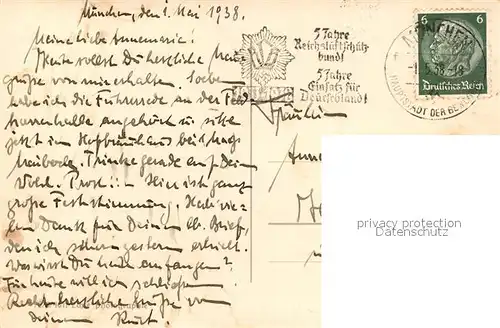 München, den 1. Mai 1938.
Meine liebe Annemarie!
Heute sollst Du herzliche Mai-
grüße von mir erhalten. Soeben
habe ich die Führerrede an der Feld-
herrnhalle angehört u. sitze
jetzt im Hofbräuhaus bei 1 Mass
Maibock. Trinke gerade auf Dein
Wohl. Prost!:= Hier ist ganz
große Feststimmung. Hab' vie-
len Dank für Deinen lb. Brief,
den ich schon gestern erhielt.
Was wirst Du heute anfangen?
Für heute will ich schließen
Recht herzliche Grüße von
Deinem Kurt.
5 Jahre
Reichsluftschutz-
bund!
5 Jahre
Einsatz für
Deutschland!
6 6
Deutsches Reich
MÜNCHEN
HAUPTSTADT DER BEWE
Fräulein
privacy protection
VINTAGE POSTCARDS